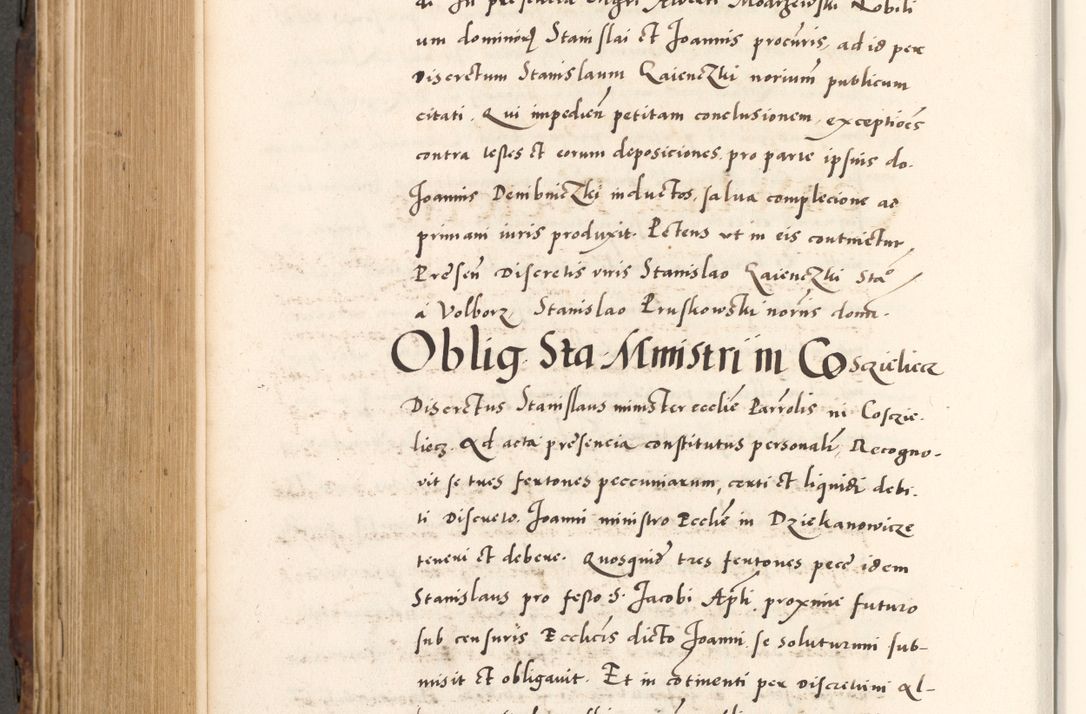 di In presencia Mgri Alberti Modrzewski Nobili
um dominorum Stanislai et Joannis procuris, ad id per
Discretum Stanislaum Gaienczki norium publicum
citati. Qui impedien petitam conclusionem, exceptiones
contra testes et eorum deposiciones pro parte ipsius do.
Joannis Dembniczki inductos, salva complecione ac
primani iuris produxit. Petens ut in eis continetur
Presen Discretis viris Stanislao Gaienczki Sta
a Volborz, Stanislao Pruskowski noriis domi.
Oblig. Sta Ministri in Cosczielicz
Discretus Stanislaus minister ecclie Parrolis in Cosczie.
liecz. Ad acta presencia constitutus personali, Recogno-
vit se tres fertones peccuniarum, certi et liquidi debi.
ti Discreto Joanni ministro Ecclie in Dziekanowicze
teneri et debere. Quosquid tres fertones pecc idem
Stanislaus pro festo S. Jacobi Apli proxime futuro
sub censuris Ecclicis dicto Joanni se soluturum sub-
misit et obligavit. Et in cotinenti per Discretum Al-